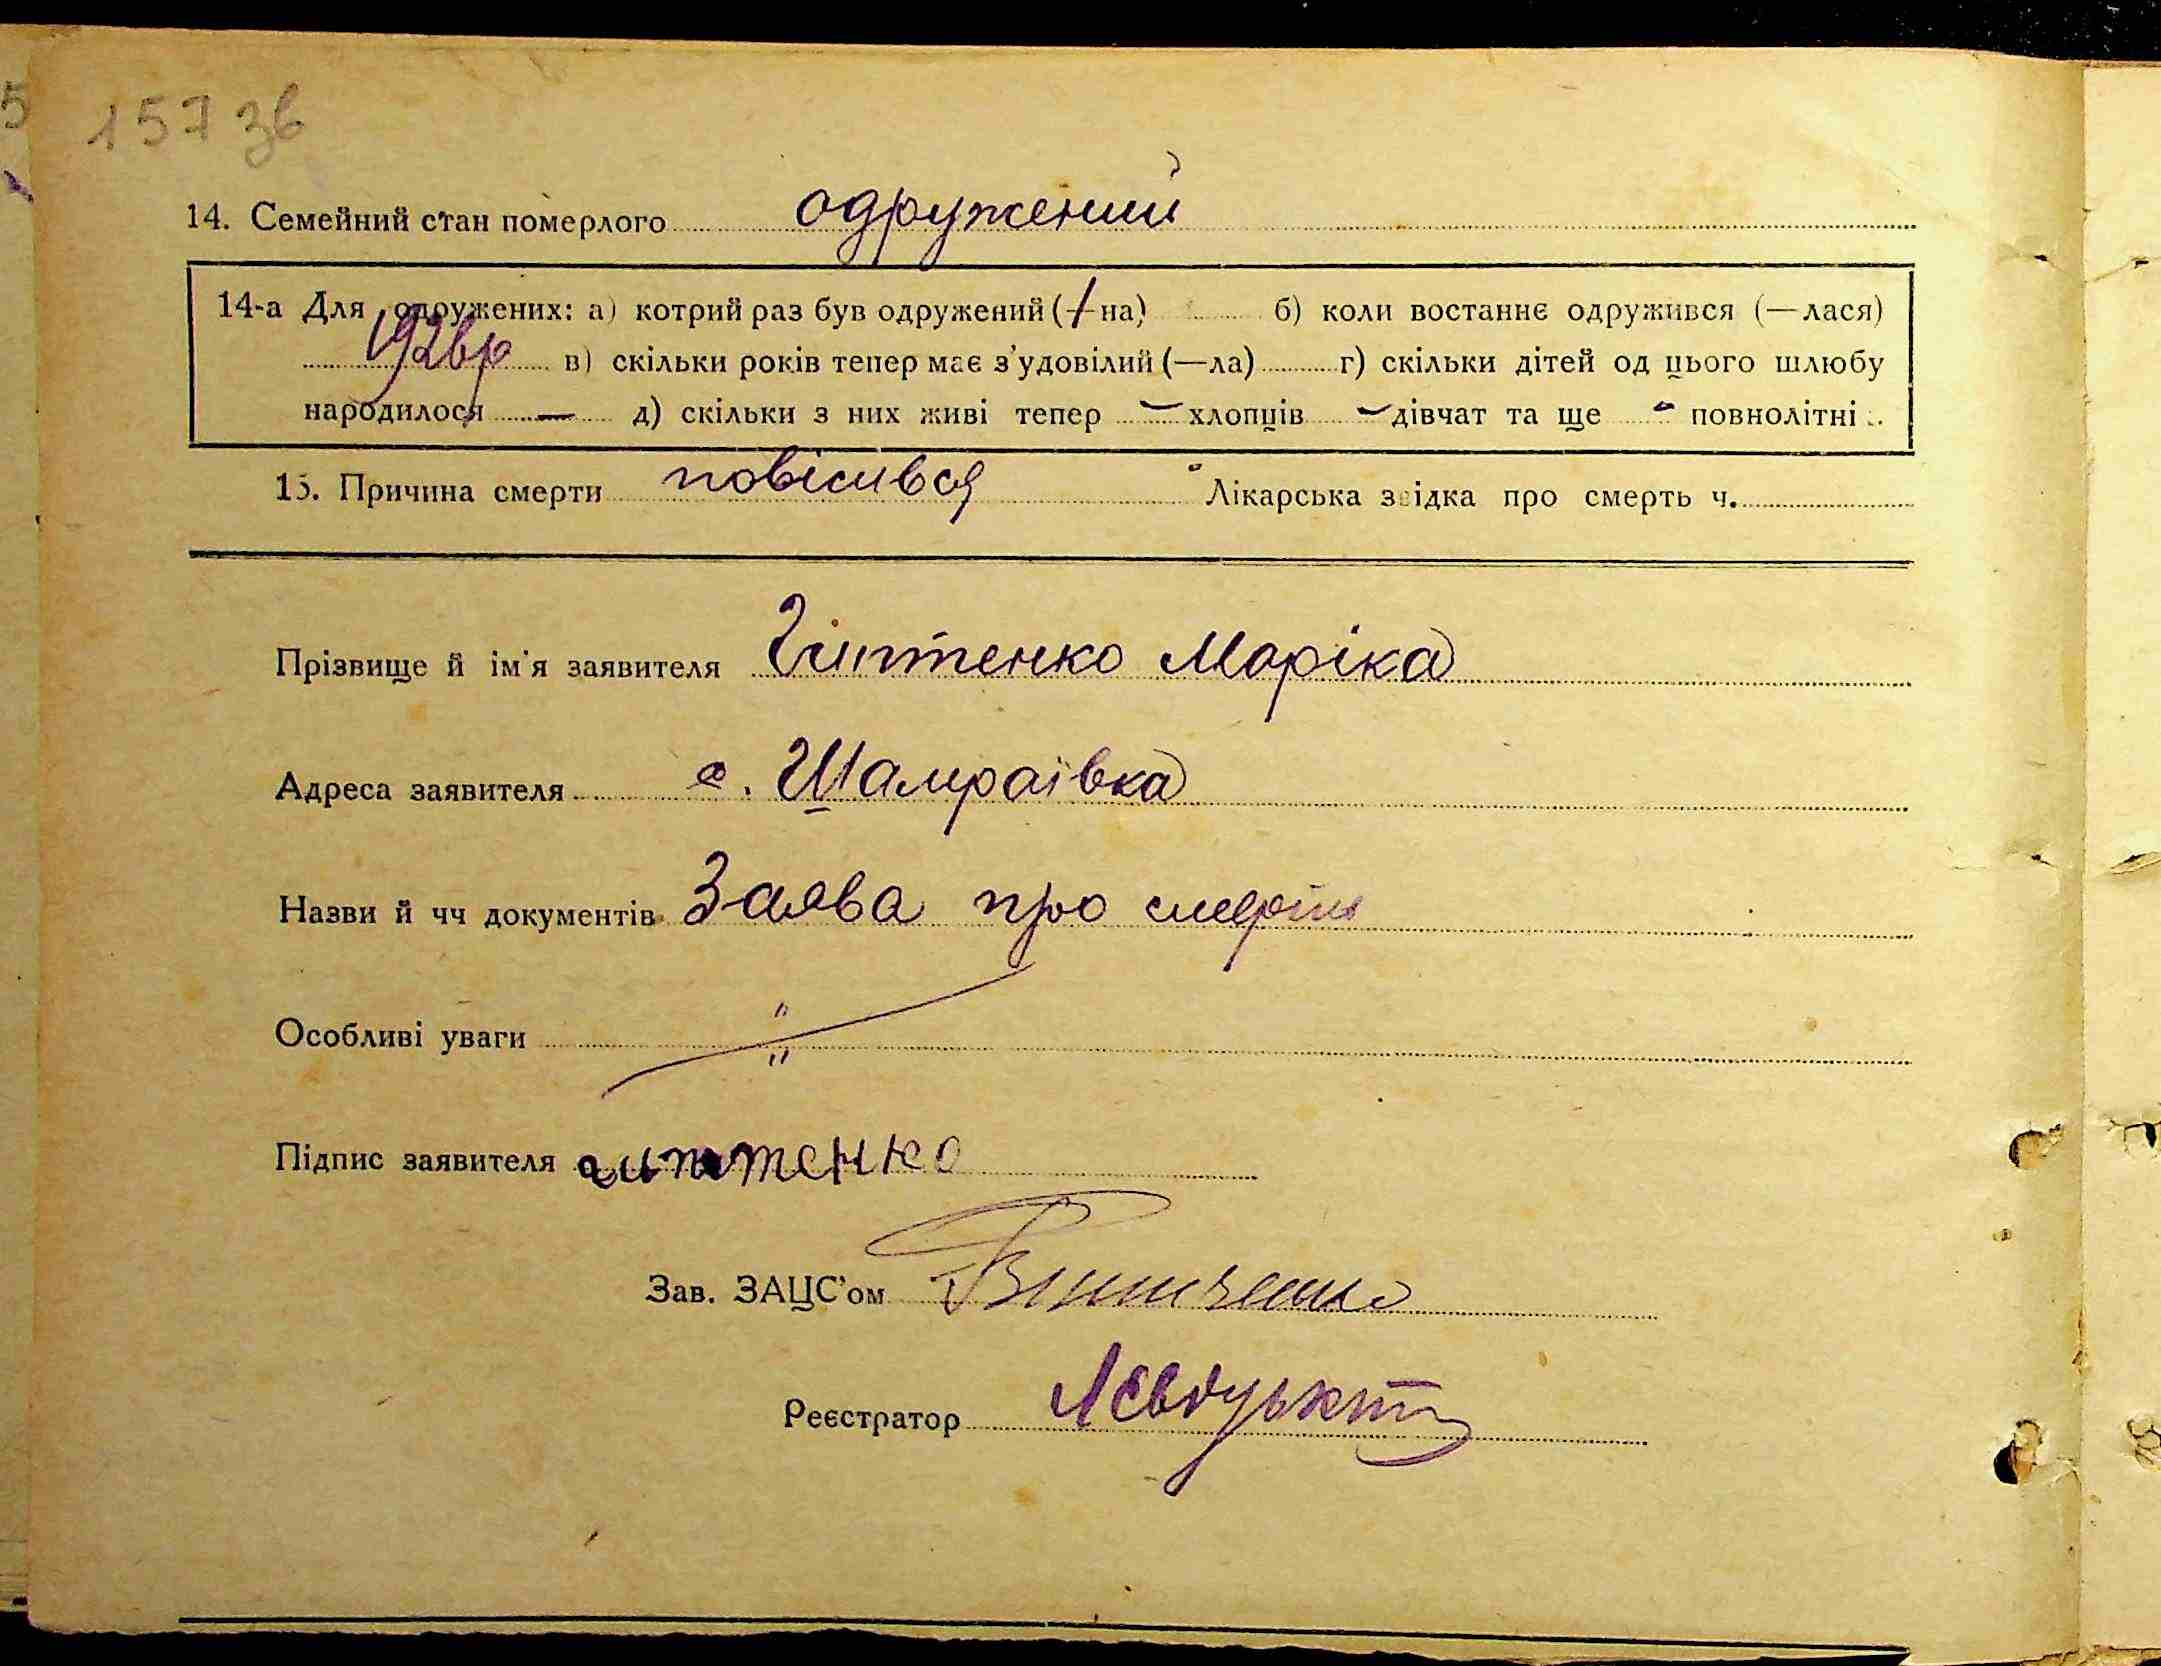 157 зв
14. Семейний стан померлого одружений
14-а Для одружених: а) котрий раз був одружений (—на) б) коли востаннє одружився (—лася)
1926р в) скільки років тепер має з'удовілий (—ла) г) скільки дітей од цього шлюбу
народилося — д) скільки з них живі тепер — хлопців — дівчат та ще - повнолітні
15. Причина смерти повісився Лікарська звідка про смерть ч.
Прізвище й ім'я заявителя Гиттенко Маріка
Адреса заявителя с. Шамраївка
Назви й чч документів Заява про смерть
Особливі уваги " "
Підпис заявителя гиттенко
Зав. ЗАЦС'ом
Реєстратор